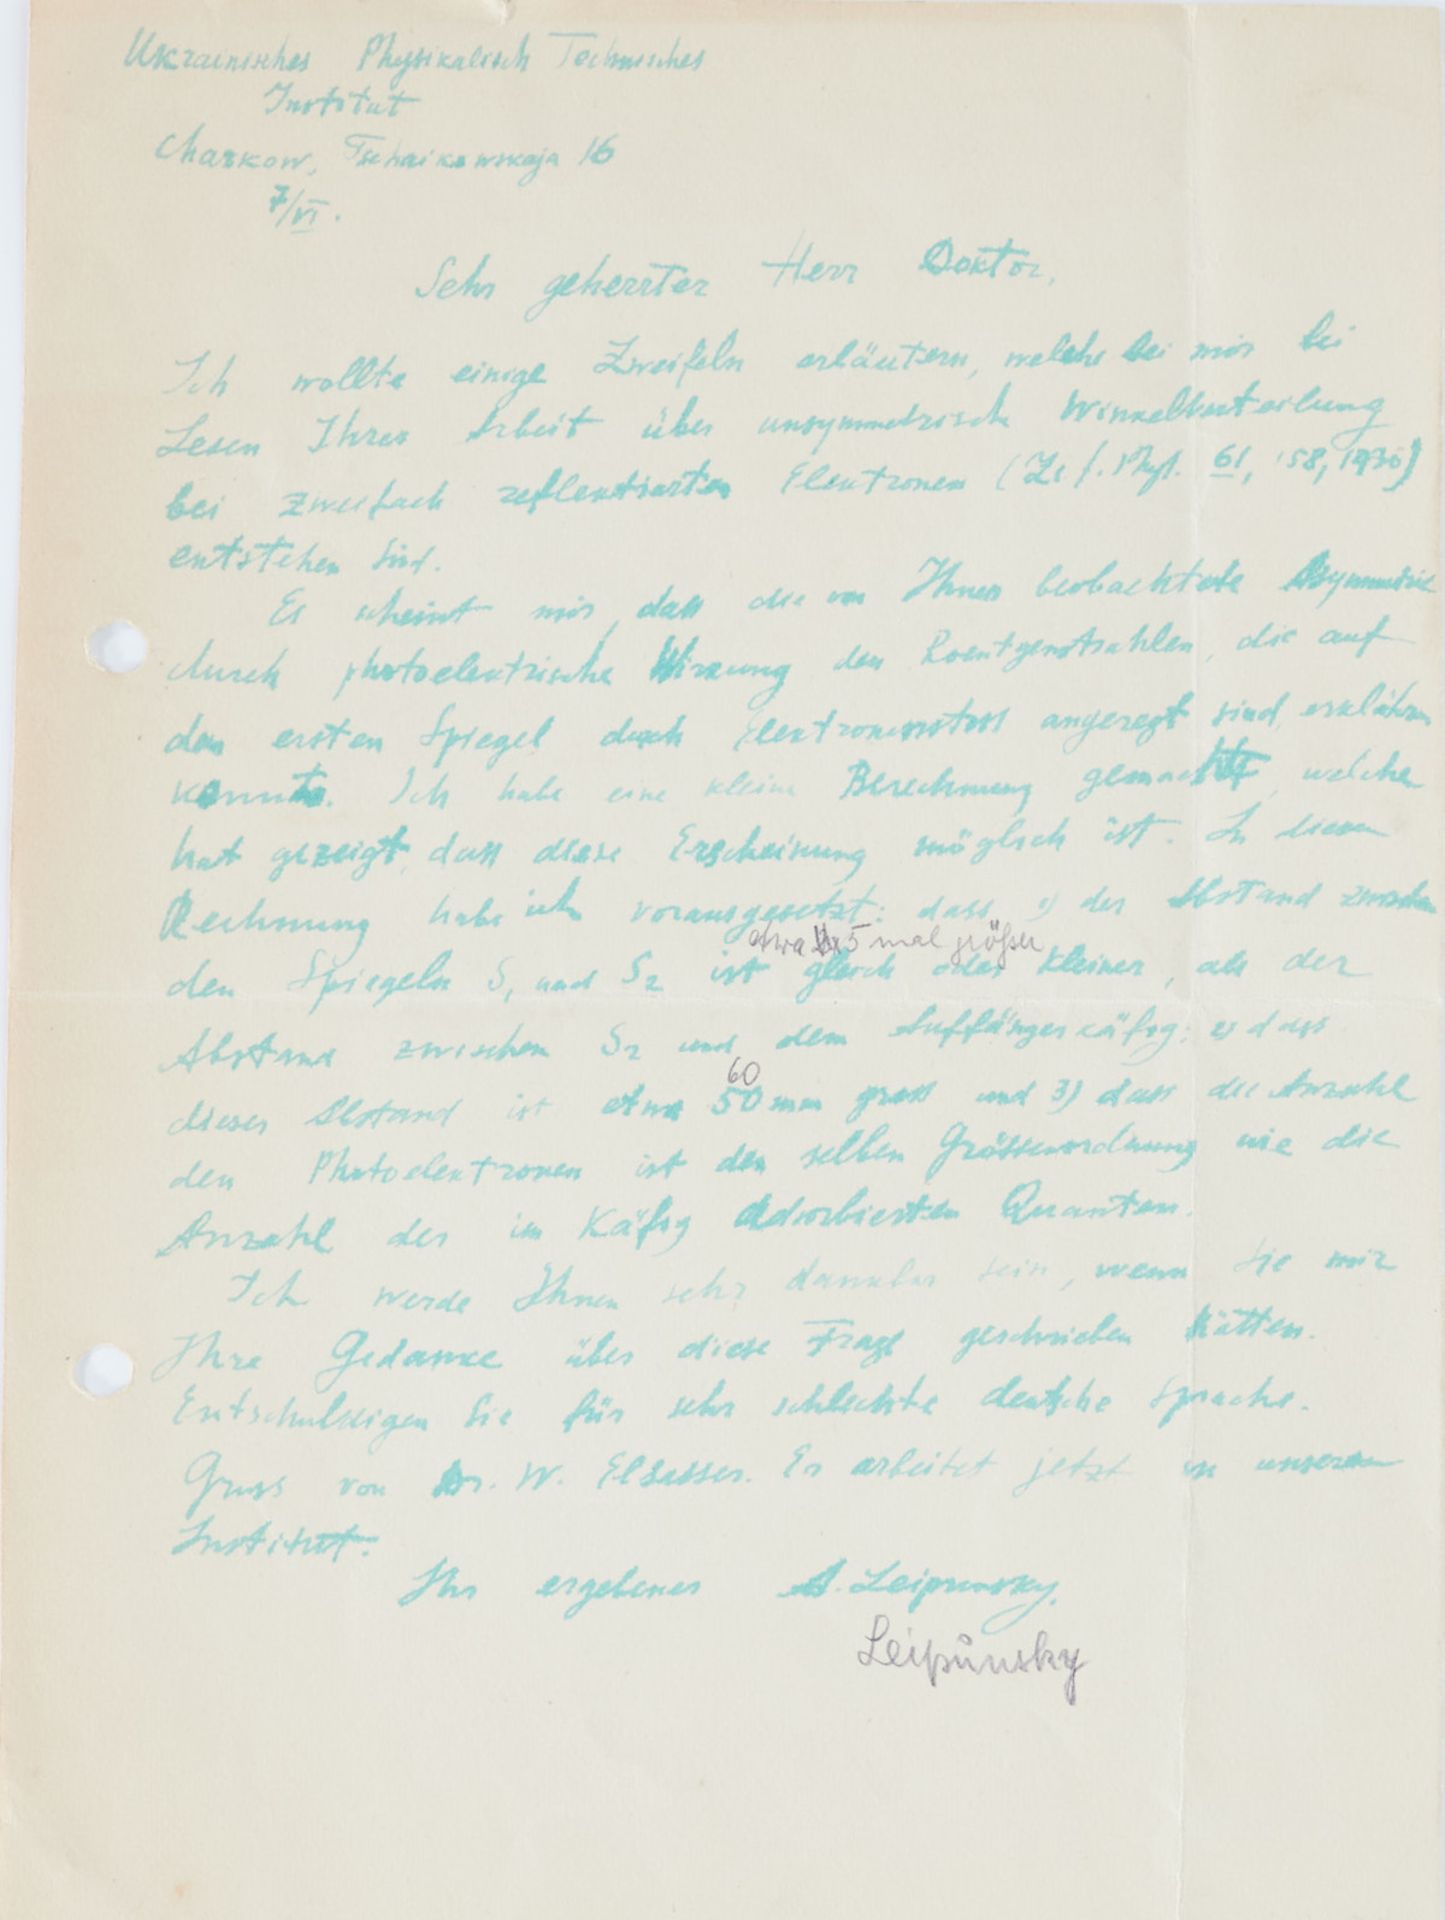 Ukrainisches Physikalisch Technisches
Institut
Charkow, Tschaikowskaja 16
7/VI.
Sehr geherrter Herr Doktor,
Ich wollte einige Zweifeln erläutern, welche bei mir bei
Lesen Ihrer Arbeit über unsymmetrische Winkelverteilung
bei zweifach reflektierten Elektronen (Zs. f. Phys. 61, 158, 1930)
entstehen sind.
Es scheint mir, dass die von Ihnen beobachtete Asymmetrie
durch photoelektrische Wirkung den Roentgenstrahlen, die auf
den ersten Spiegel durch Elektronenstoss angeregt sind, erklähren
konnte. Ich habe eine kleine Berechnung gemacht, welche
hat gezeigt, dass diese Erscheinung möglich ist. In diesen
Rechnung habe ich vorausgesetzt: dass 1) der Abstand zwischen
etwa 5 mal größer
den Spiegeln S1 und S2 ist gleich oder kleiner, als der
Abstand zwischen S2 und dem Auffängerkäfig; 2) dass
60
dieser Abstand ist etwa 50 mm gross und 3) dass die Anzahl
den Photoelektronen ist den selben Grössenordnung wie die
Anzahl der im Käfig adsorbierten Quanten.
Ich werde Ihnen sehr dankbar sein, wenn Sie mir
Ihre Gedanke über diese Frage geschrieben hätten.
Entschuldigen Sie für sehr schlechte deutsche Sprache.
Gruss von Dr. W. Elsasser. Er arbeitet jetzt in unserem
Institut.
Ihr ergebener A. Leipunsky.
Leipunsky